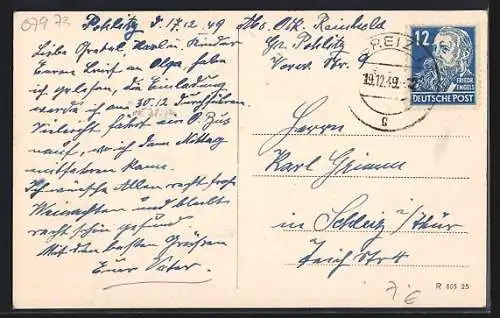 079 73
Pohlitz, d. 17.12.49
Liebe Gretel, Karl u. Kinder
Euren Brief an Olga, habe
ich gelesen, die Einladung
werde ich am 30.12. durchführen.
Vielleicht fährt ein O. Bus
nauf, wo ich dem Mittag
mitfahren kann.
Ich wünsche Allen recht frohe
Weinachten und bleibt
recht schön gesund.
Mit den besten Grüssen
Euer Vater.
Reinhold
Gr. Pohlitz
Nr. 9
GREIZ
19.12.49
g
12
FRIEDR.
ENGELS
DEUTSCHE POST
Herrn
Karl Grimm
in Schleiz i/Thür
Teich Str 4
R 803 25
7 €